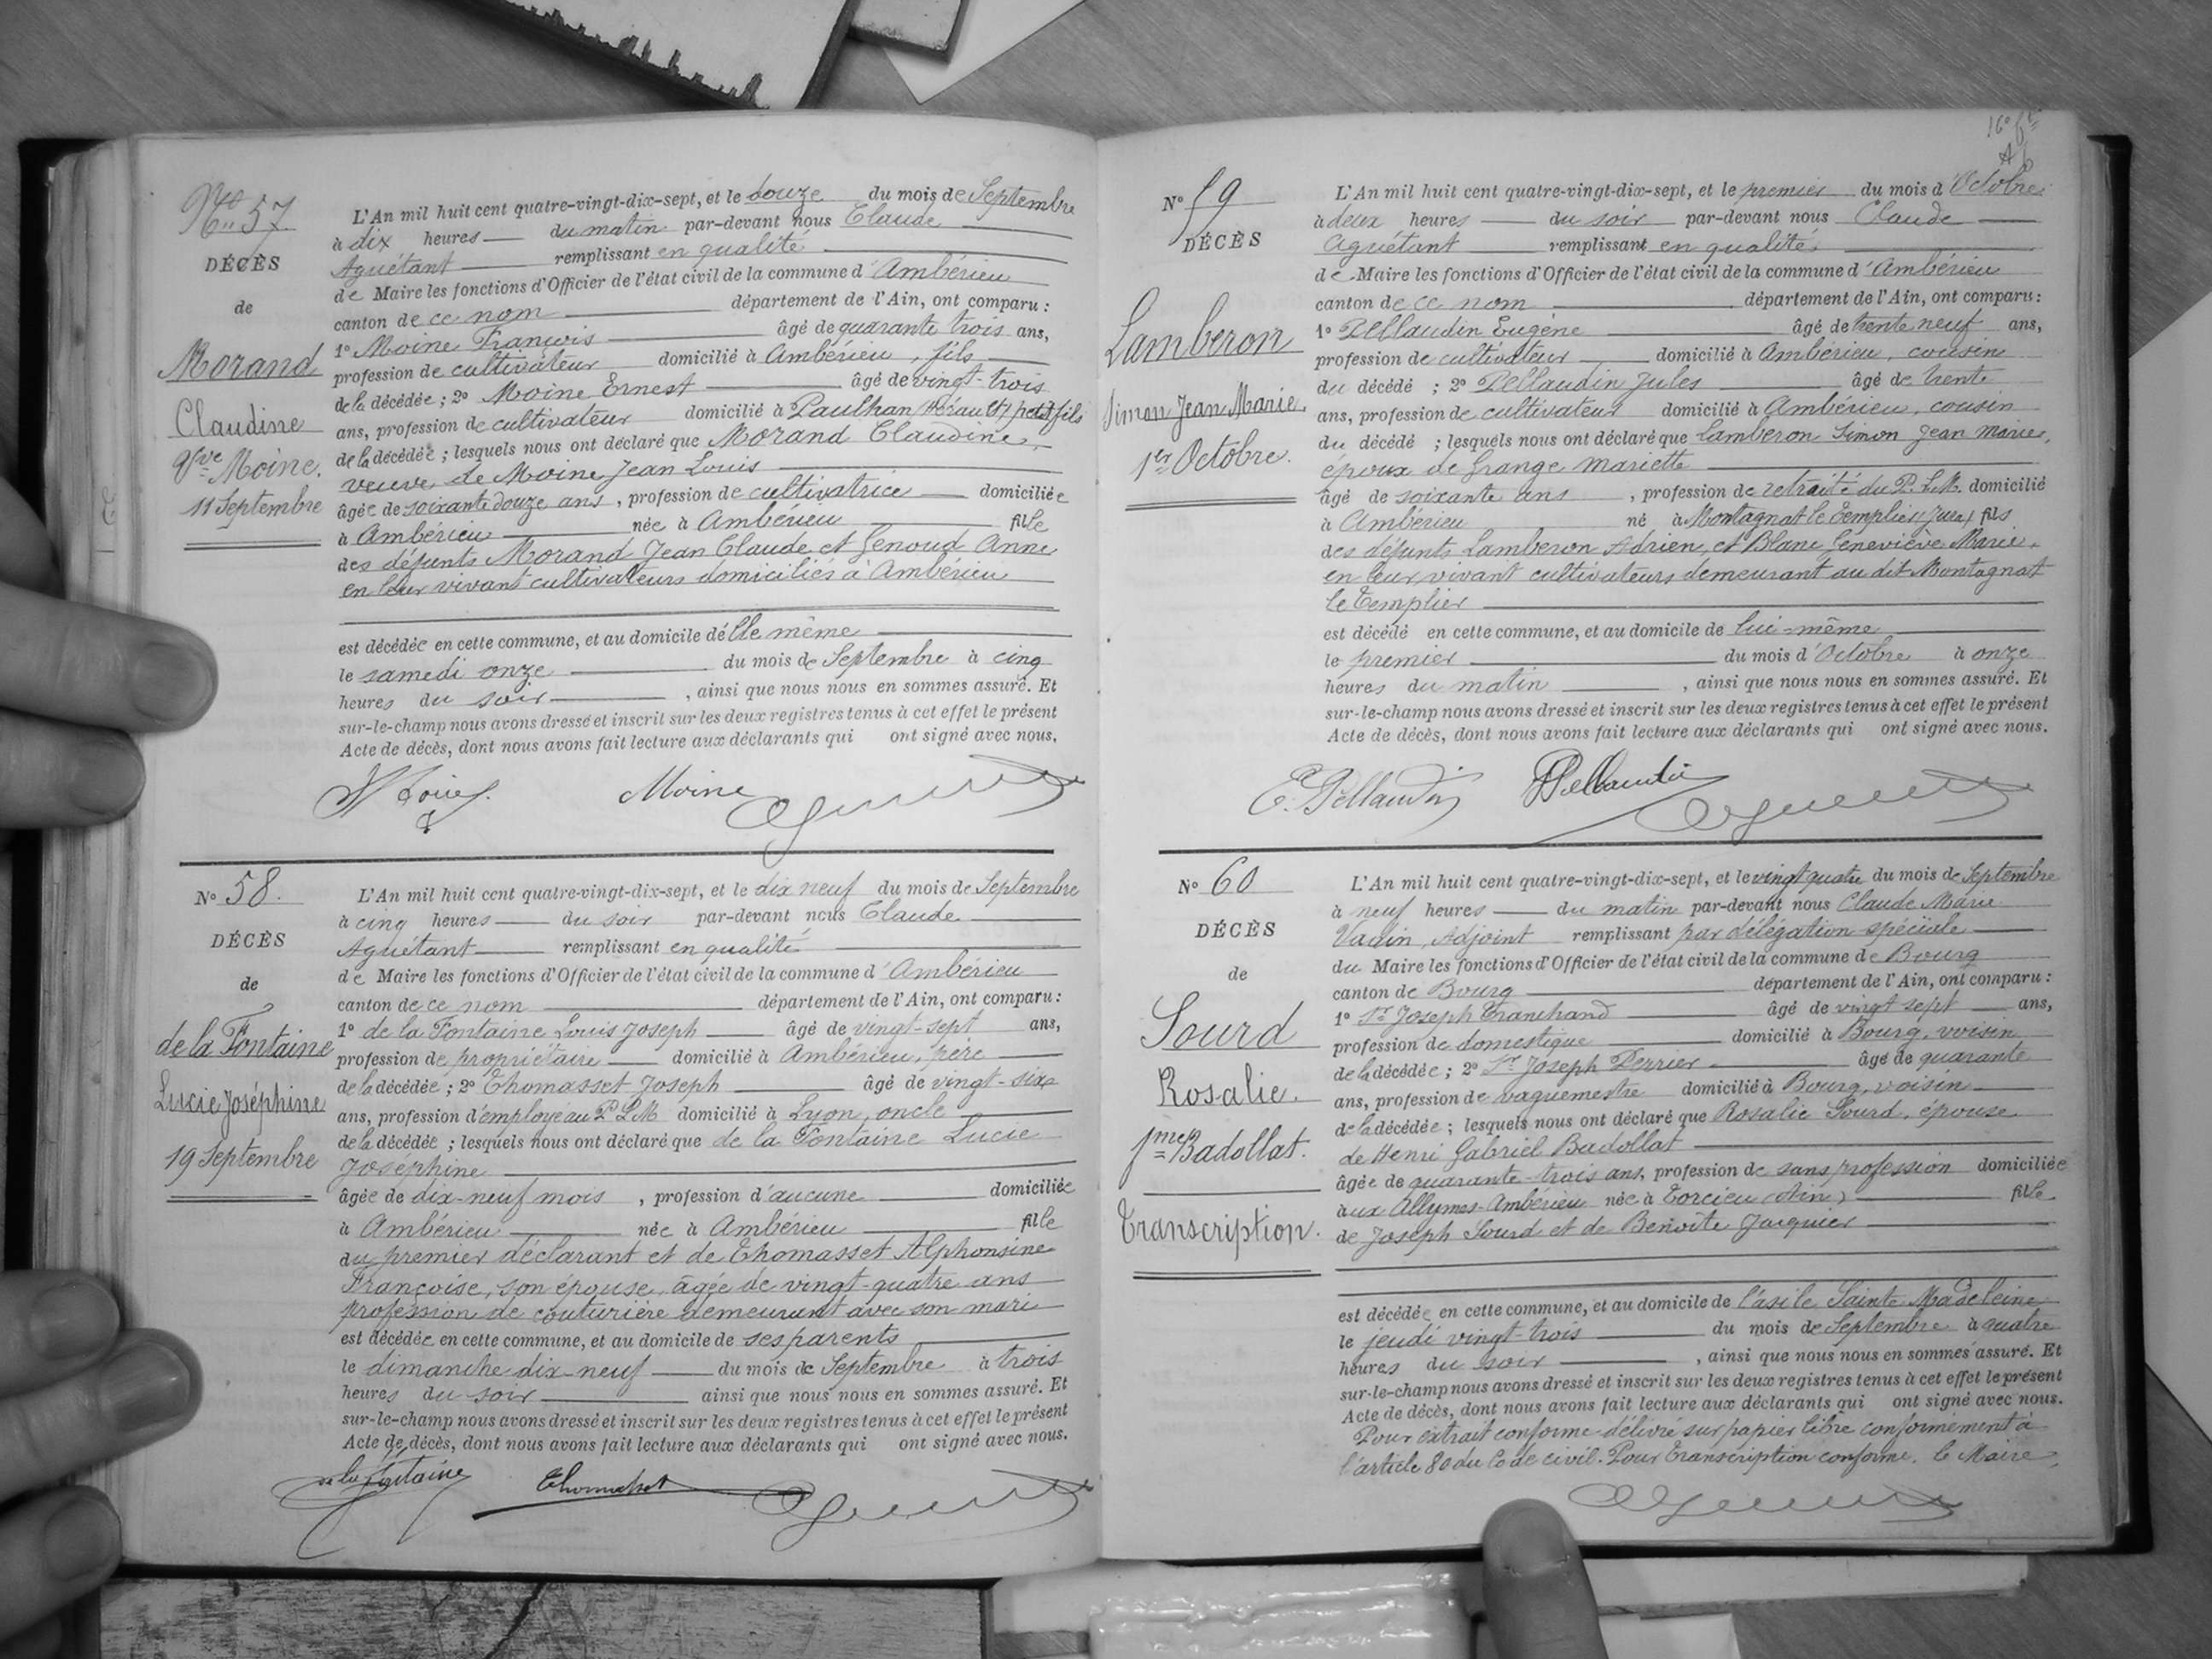 No 57
DÉCÈS
de
Morand
Claudine
Vve Moine.
11 Septembre
L'An mil huit cent quatre-vingt-dix-sept, et le douze du mois de Septembre
à dix heures du matin par-devant nous Claude
Aguétant remplissant en qualité
de Maire les fonctions d'Officier de l'état civil de la commune d'Ambérieu
canton de ce nom département de l'Ain, ont comparu :
1º Moine François âgé de quarante trois ans,
profession de cultivateur domicilié à Ambérieu, fils
de la décédée ; 2º Moine Ernest âgé de vingt-trois
ans, profession de cultivateur domicilié à Paulhan (Hérault) petit fils
de la décédée ; lesquels nous ont déclaré que Morand Claudine,
veuve de Moine Jean Louis
âgée de soixante douze ans, profession de cultivatrice domiciliée
à Ambérieu née à Ambérieu fille
des défunts Morand Jean Claude et Genoud Anne
en leur vivant cultivateurs domiciliés à Ambérieu
est décédée en cette commune, et au domicile d'elle même
le samedi onze du mois de Septembre à cinq
heures du soir, ainsi que nous nous en sommes assuré. Et
sur-le-champ nous avons dressé et inscrit sur les deux registres tenus à cet effet le présent
Acte de décès, dont nous avons fait lecture aux déclarants qui ont signé avec nous.
Moine
No 58.
DÉCÈS
de
de la Fontaine
Lucie Joséphine
19 Septembre
L'An mil huit cent quatre-vingt-dix-sept, et le dix neuf du mois de Septembre
à cinq heures du soir par-devant nous Claude
Aguétant remplissant en qualité
de Maire les fonctions d'Officier de l'état civil de la commune d'Ambérieu
canton de ce nom département de l'Ain, ont comparu :
1º de la Fontaine Louis Joseph âgé de vingt-sept ans,
profession de propriétaire domicilié à Ambérieu, père
de la décédée ; 2º Thomasset Joseph âgé de vingt-six
ans, profession d'employé au P.L.M domicilié à Lyon, oncle
de la décédée ; lesquels nous ont déclaré que de la Fontaine Lucie
Joséphine
âgée de dix-neuf mois, profession d'aucune domiciliée
à Ambérieu née à Ambérieu fille
du premier déclarant et de Thomasset Alphonsine
Françoise, son épouse, âgée de vingt-quatre ans
profession de couturière demeurant avec son mari
est décédée en cette commune, et au domicile de ses parents
le dimanche dix-neuf du mois de Septembre à trois
heures du soir ainsi que nous nous en sommes assuré. Et
sur-le-champ nous avons dressé et inscrit sur les deux registres tenus à cet effet le présent
Acte de décès, dont nous avons fait lecture aux déclarants qui ont signé avec nous.
de la Fontaine Thomasset
No 59
DÉCÈS
Lamberon
Simon Jean Marie.
1er Octobre.
L'An mil huit cent quatre-vingt-dix-sept, et le premier du mois d'Octobre
à deux heures du soir par-devant nous Claude
Aguétant remplissant en qualité
de Maire les fonctions d'Officier de l'état civil de la commune d'Ambérieu
canton de ce nom département de l'Ain, ont comparu :
1º Pellaudin Eugène âgé de trente neuf ans,
profession de cultivateur domicilié à Ambérieu, cousin
du décédé ; 2º Pellaudin Jules âgé de trente
ans, profession de cultivateur domicilié à Ambérieu, cousin
du décédé ; lesquels nous ont déclaré que Lamberon Simon Jean Marie,
époux de Grange Mariette
âgé de soixante ans, profession de retraité du P.L.M. domicilié
à Ambérieu né à Montagnat le Templier (Jura) fils
des défunts Lamberon Adrien, et Blanc Geneviève Marie,
en leur vivant cultivateurs demeurant au dit Montagnat
le Templier
est décédé en cette commune, et au domicile de lui-même
le premier du mois d'Octobre à onze
heures du matin, ainsi que nous nous en sommes assuré. Et
sur-le-champ nous avons dressé et inscrit sur les deux registres tenus à cet effet le présent
Acte de décès, dont nous avons fait lecture aux déclarants qui ont signé avec nous.
E. Pellaudin Pellaudin
No 60
DÉCÈS
de
Sourd
Rosalie.
fme Badollat.
Transcription.
L'An mil huit cent quatre-vingt-dix-sept, et le vingt quatre du mois de Septembre
à neuf heures du matin par-devant nous Claude Marie
Adjoint remplissant par délégation spéciale
du Maire les fonctions d'Officier de l'état civil de la commune de Bourg
canton de Bourg département de l'Ain, ont comparu :
1º Sr Joseph Tranchand âgé de vingt sept ans,
profession de domestique domicilié à Bourg, voisin
de la décédée ; 2º Sr Joseph Perrier âgé de quarante
ans, profession de vaguemestre domicilié à Bourg, voisin
de la décédée ; lesquels nous ont déclaré que Rosalie Sourd, épouse
de Henri Gabriel Badollat
âgée de quarante-trois ans, profession de sans profession domiciliée
aux Allymes-Ambérieu née à Torcieu (Ain) fille
de Joseph Sourd et de Benoîte Jacquier
est décédée en cette commune, et au domicile de l'asile Sainte Madeleine
le jeudi vingt-trois du mois de Septembre à quatre
heures du soir, ainsi que nous nous en sommes assuré. Et
sur-le-champ nous avons dressé et inscrit sur les deux registres tenus à cet effet le présent
Acte de décès, dont nous avons fait lecture aux déclarants qui ont signé avec nous.
Pour extrait conforme délivré sur papier libre conformément à
l'article 80 du Code civil. Pour transcription conforme. Le Maire,